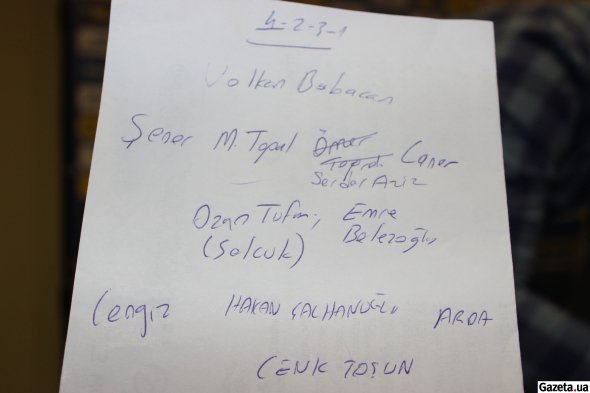 4-2-3-1
Volkan Babacan
Şener M. Topal Ömer Toprak Caner
Serdar Aziz
Ozan Tufan, Emre
(Selcuk) Belezoğlu
Cengiz HAKAN ÇALHANOĞLU ARDA
CENK TOSUN
Gazeta.ua